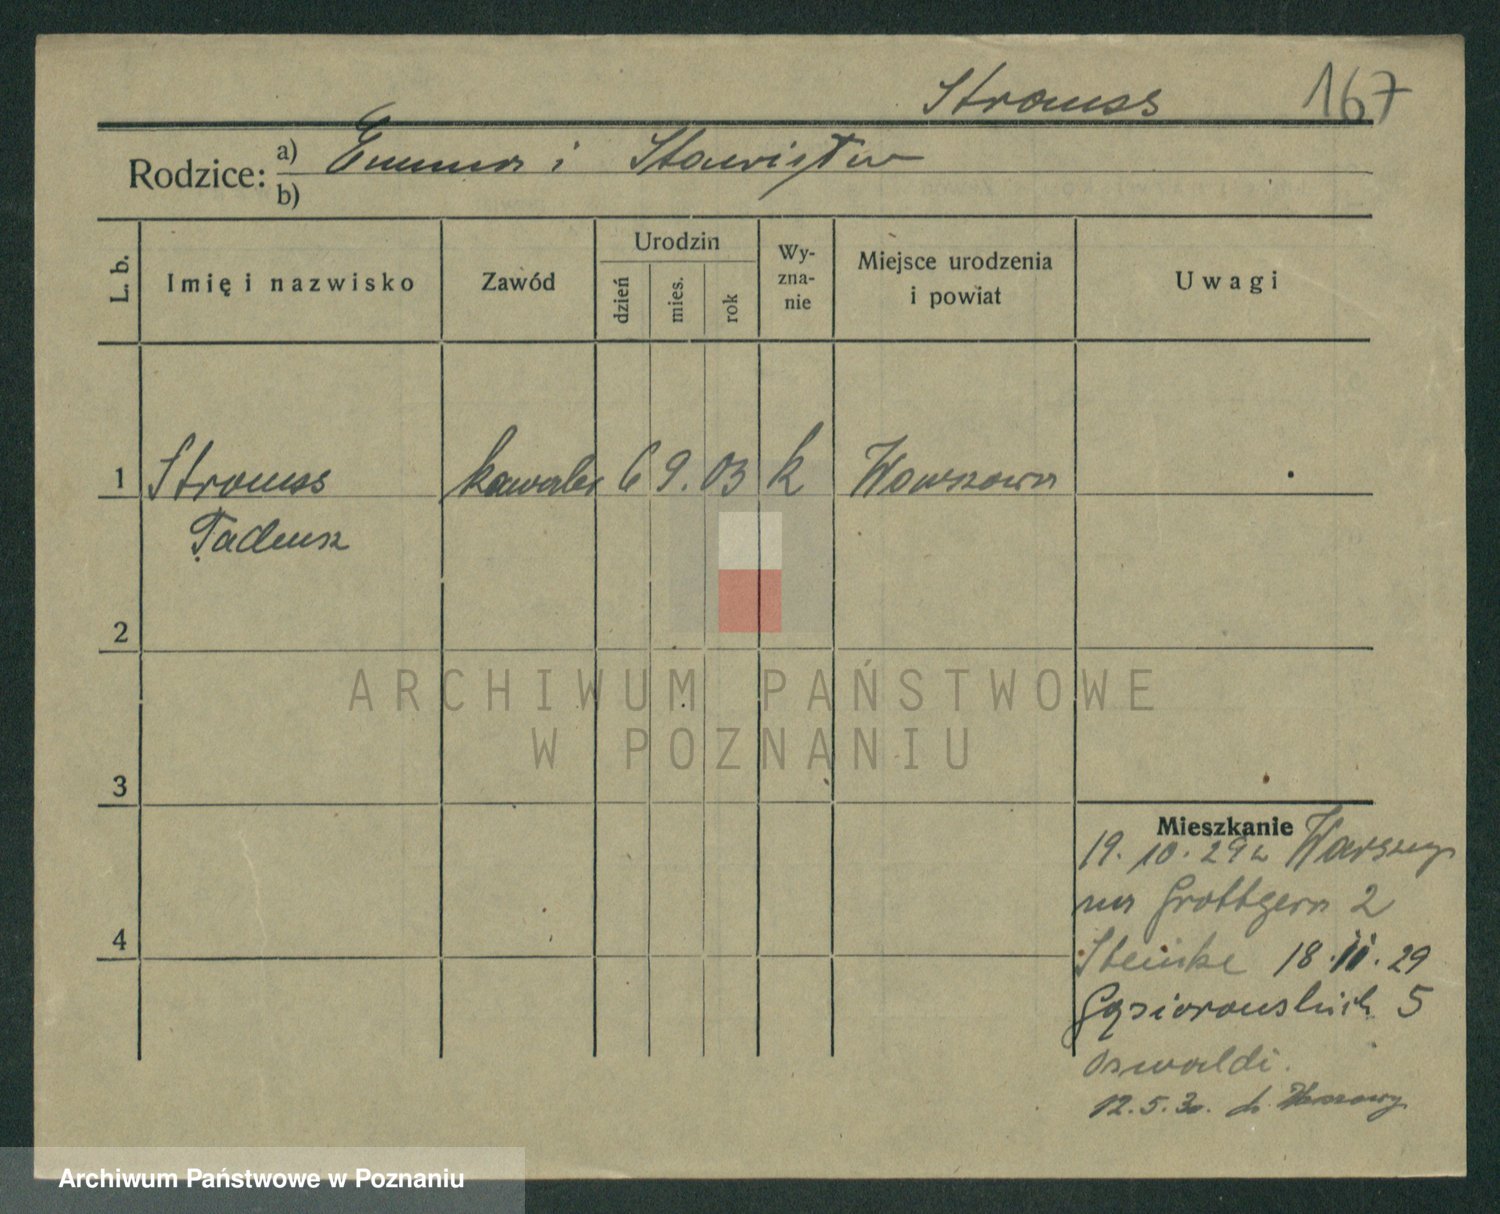 Strauss 167
Rodzice: a) Emma i Stanisław
b)
L. b. Imię i nazwisko Zawód Urodzin dzień mies. rok Wy-zna-nie Miejsce urodzenia i powiat Uwagi
1 Strauss kawaler 6 9. 03 k Warszawa
Tadeusz
2
ARCHIWUM PAŃSTWOWE
W POZNANIU
3
Mieszkanie
19. 10. 29 z Warszawy
na Grottgera 2
Steinke 18. 11. 29
Gąsiorowskich 5
Oswaldi.
12. 5. 30. do Warszawy
4
Archiwum Państwowe w Poznaniu